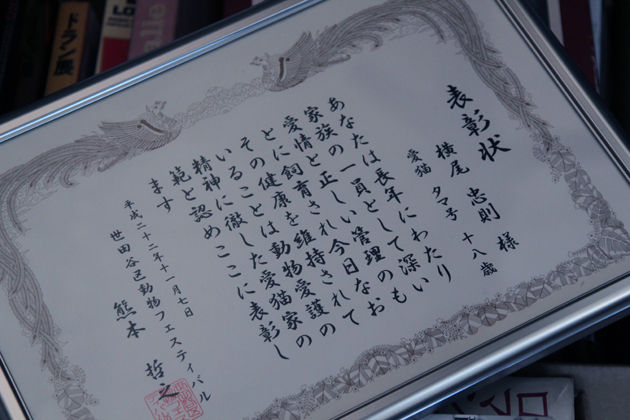 表彰状
横尾 忠則 様
愛猫 タマ子 十八歳
あなたは長年にわたり
家族の一員として深い
愛情と正しい管理のも
とに飼育され今日なお
健康を維持されており
そのことは動物愛護の
精神に徹した愛猫家の
範と認めここに表彰し
ます
平成二十二年十一月七日
世田谷区動物フェスティバル
熊本 哲之
ドラン展